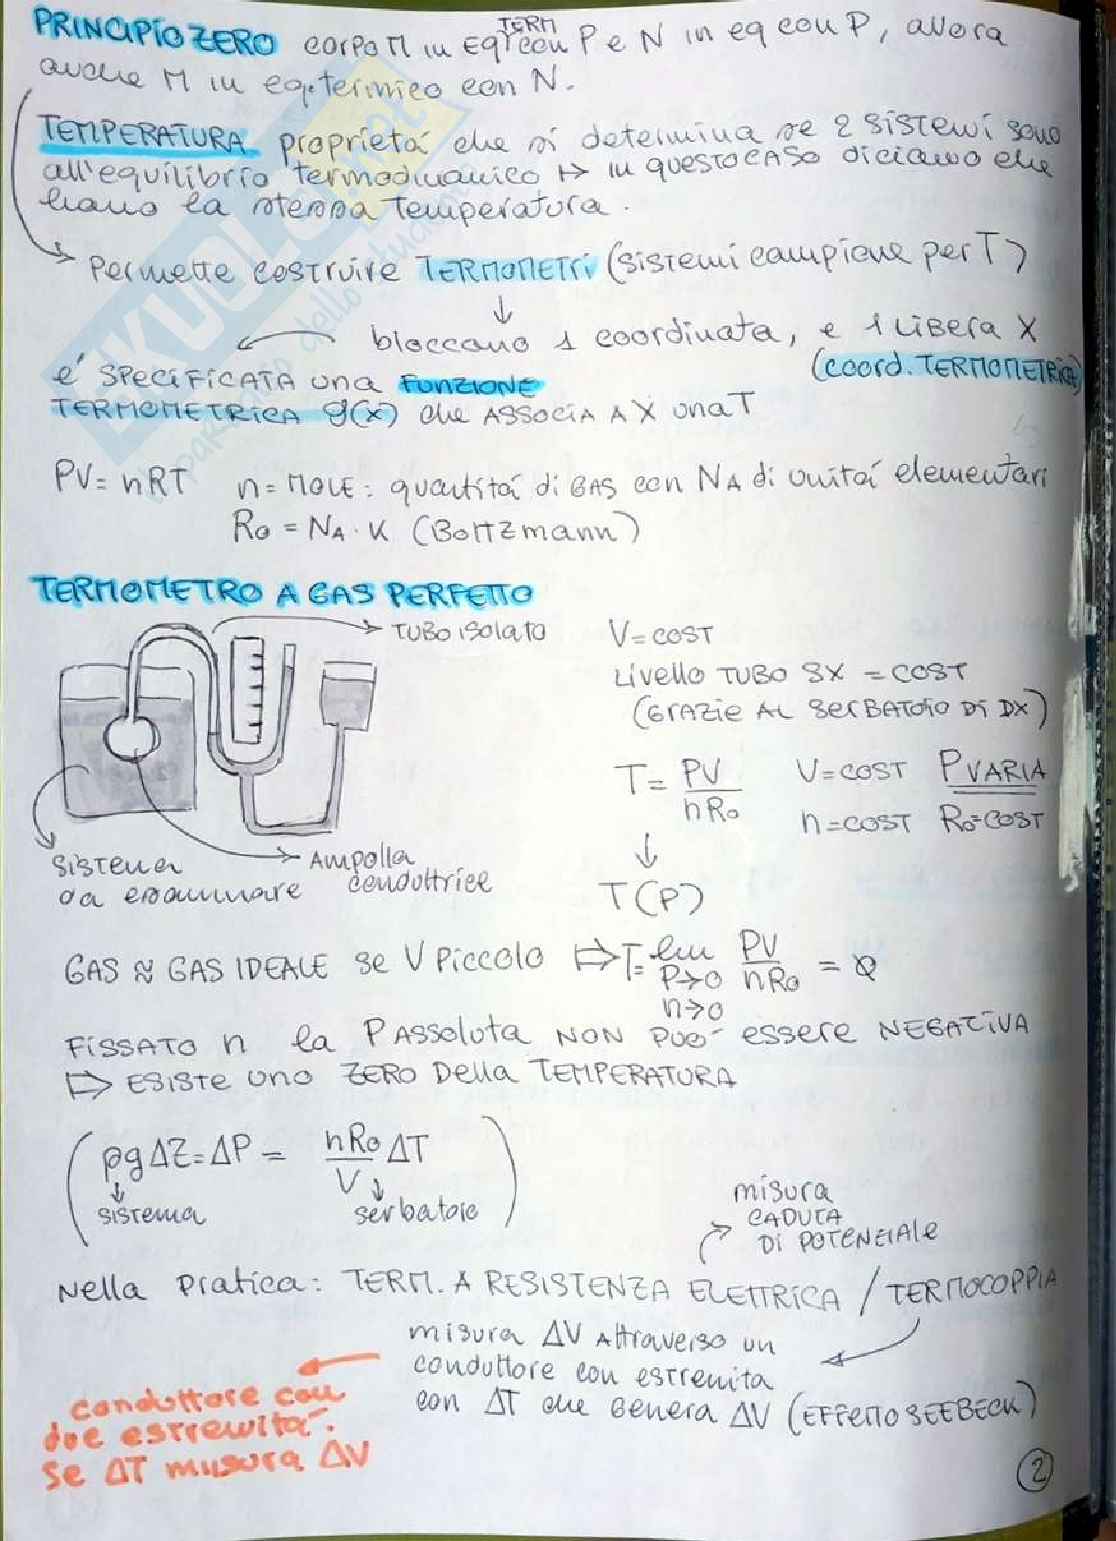 PRINCIPIO ZERO corpo M in EQ TERM con P e N in eq con P, allora
anche M in eq. termico con N.
TEMPERATURA proprietá che si determina se 2 sistemi sono
all'equilibrio termodinamico ↦ in questo caso diciamo che
hanno la stessa Temperatura.
Permette costruire TERMOMETRI (sistemi campione per T)
bloccano 1 coordinata, e 1 LIBERA X
(coord. TERMOMETRICA)
é SPECIFICATA una FUNZIONE
TERMOMETRICA g(x) che ASSOCIA A X una T
PV = nRT n = MOLE: quantitá di GAS con NA di unitá elementari
R0 = NA · K (Boltzmann)
TERMOMETRO A GAS PERFETTO
TUBO isolato
V = COST
Livello TUBO SX = COST
(GRAZIE AL SERBATOIO DI DX)
T = PV/nR0 V = COST P VARIA
n = COST R0 = COST
T(P)
sistema
da esaminare
AMPOLLA
conduttrice
GAS ≈ GAS IDEALE se V Piccolo ⇒ T = lim P→0 n→0 PV/nR0 = 0
FISSATO n la P ASSOLUTA NON PUO' essere NEGATIVA
⇒ ESISTE UNO ZERO Della TEMPERATURA
(ρgΔZ = ΔP = nR0/V ΔT)
sistema serbatoio
misura
CADUTA
DI POTENZIALE
Nella Pratica: TERM. A RESISTENZA ELETTRICA / TERMOCOPPIA
misura ΔV Attraverso un
conduttore con estremita
con ΔT che Genera ΔV (EFFETTO SEEBECK)
conduttore con
due estremitá.
Se ΔT misura ΔV
2